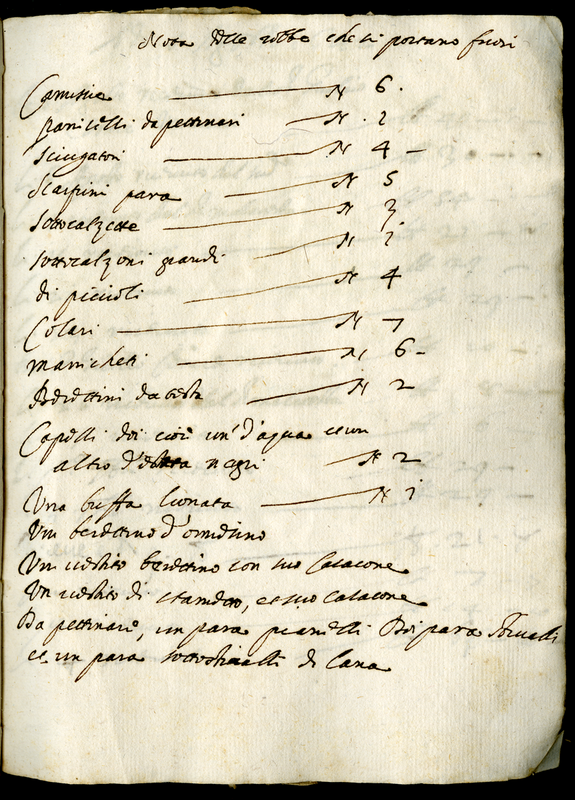 Nota delle robbe che si portano fuori
Camisie N 6.
pannicelli da pettinari N . 2
Sciugatori N 4 -
Scarpini para N 5
Sottocalzette N 3
sottocalzoni grandi N i
di piccioli N 4
Colari N 7
manicheti N 6 -
Berettini da testa N 2
Capelli doi cioè un' d'aqua et un
altro d' negri N 2
Una buffa lionata N i
Un berettino d'ormesino
Un vestito berettino con suo Casacone
Un vestito di stametto, et suo Casacone
Da pettinare, un para pianelli Doi para
et un para di lana